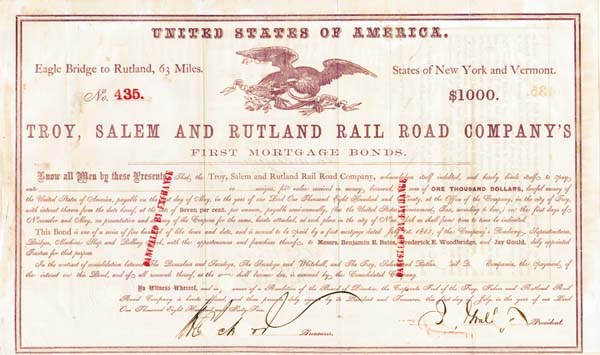 UNITED STATES OF AMERICA.
Eagle Bridge to Rutland, 63 Miles.
States of New York and Vermont.
No. 435.
$1000.
TROY, SALEM AND RUTLAND RAIL ROAD COMPANY'S
FIRST MORTGAGE BONDS.
Know all Men by these Presents, That, the Troy, Salem and Rutland Rail Road Company, itself indebted, and hereby binds itself to pay,
unto for value received in money, borrowed, sum of ONE THOUSAND DOLLARS, lawful money of
the United States of America, payable on the first day of May, in the year of our Lord One Thousand Eight Hundred and at the Office of the Company, in the City of Troy,
with interest thereon from the date hereof, at the of seven per cent, per annum, payable semi-annually, on the first days of
November and May, on presentation and of the Coupon for the same, hereto attached, at such place in the city of New as shall from time to time be indicated.
This Bond is one of a series of five of like tenor and date, and is secured to be paid by a first mortgage dated 1865, of the Company's Roadway, Superstructure,
Bridges, Machine Shop and Rolling with the appurtenances and franchises thereof, to Messrs. Benjamin E. Bates, Frederick E. Woodbridge, and Jay Gould, duly appointed
Trustees for that purpose.
In the contract of consolidation between The Rensselaer and Saratoga, The Saratoga and Whitehall and The Troy, Salem and Rutland Companies, the payment of
the interest on this Bond, and of all secured thereby, as the shall become due, is assumed by the Consolidated Company.
In Witness Whereof, and in of a Resolution of the Board of Directors, the Corporate Seal of the Troy, Salem and Rutland Rail
Road Company is hereto affixed, and these presents duly signed by its President and Treasurer, this first day of July, in the year of our Lord
One Thousand Eight Hundred and Sixty Five.
Treasurer.
President.
CANCELLED BY EXCHANGE
CANCELLED BY EXCHANGE